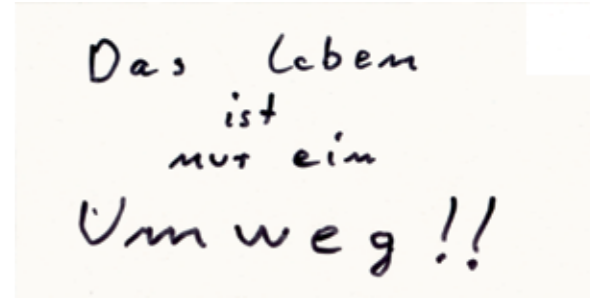 Das Leben
ist
nur ein
Umweg!!